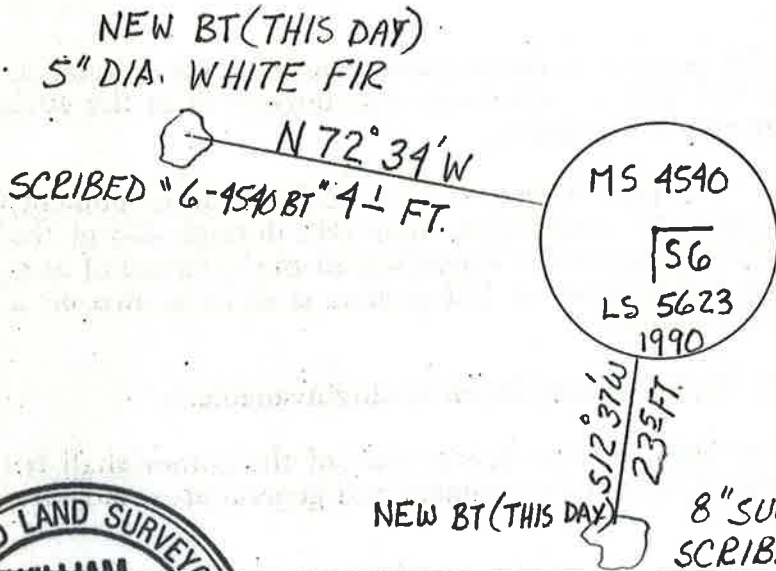 NEW BT (THIS DAY)
5" DIA. WHITE FIR
N 72° 34' W
SCRIBED "6-4540 BT" 4 1 FT.
MS 4540
S6
LS 5623
1990
S12° 37' W
23 5 FT.
NEW BT (THIS DAY)
8" SU
SCRIB
LAND SURVEYO
WILLIAM